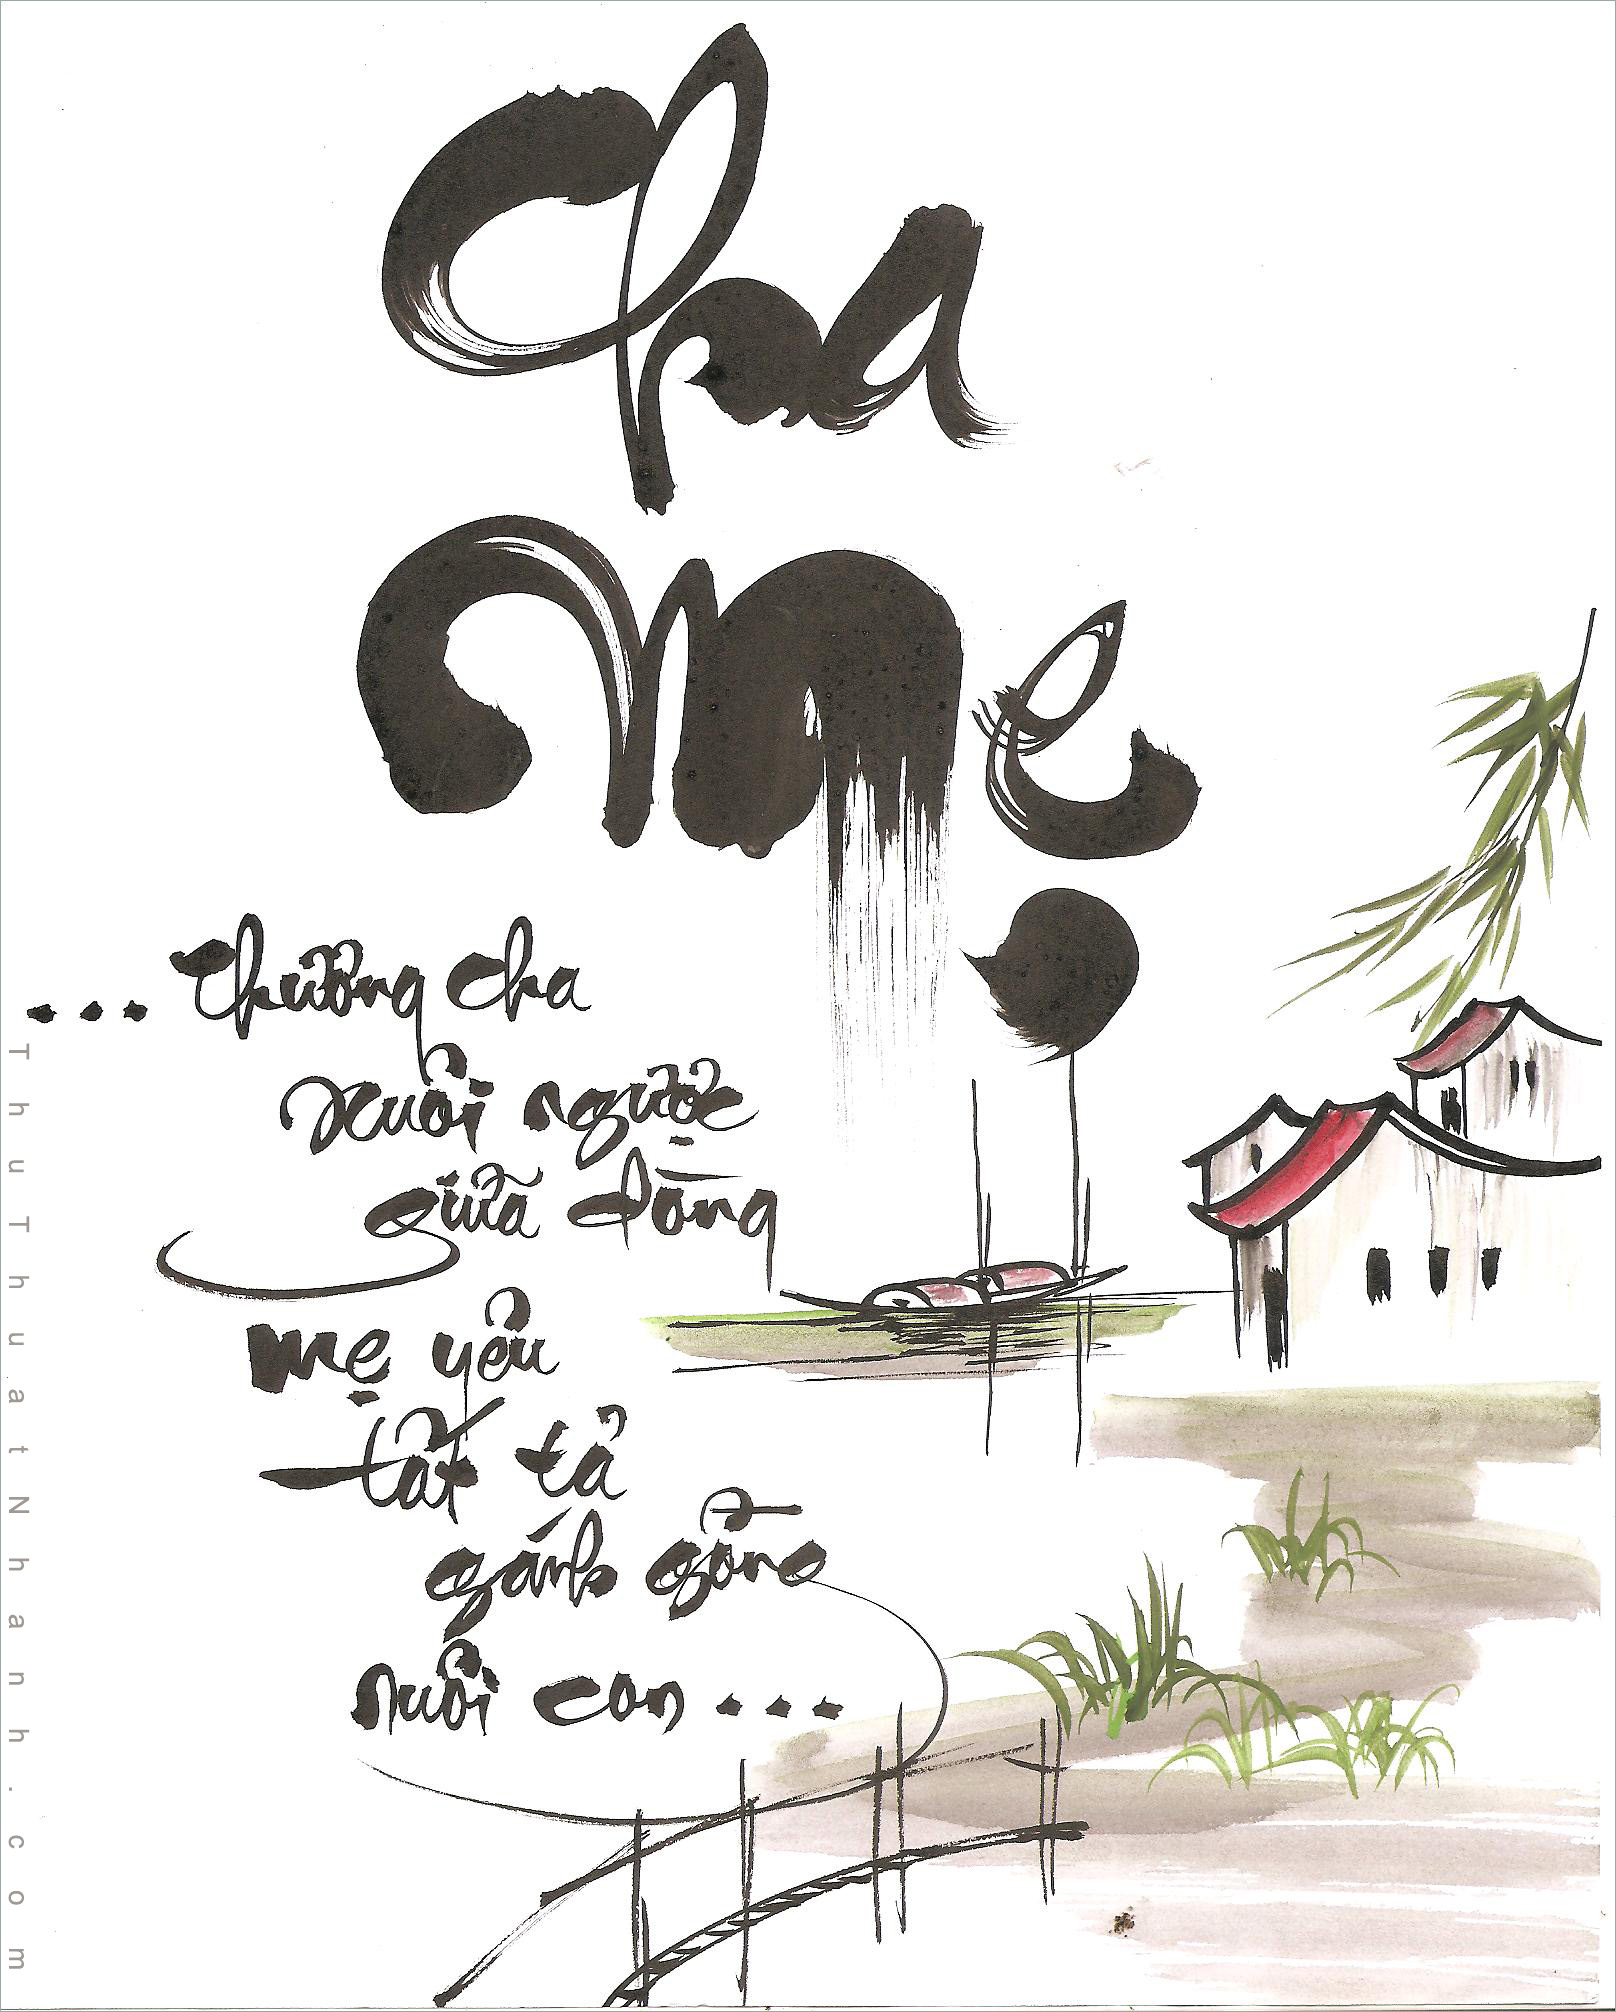 Cha
Mẹ
... Thương cha
xuôi ngược
giữa dòng
mẹ yêu
tất tả
gánh gồng
nuôi con ...
ThuThuatNhanh.com